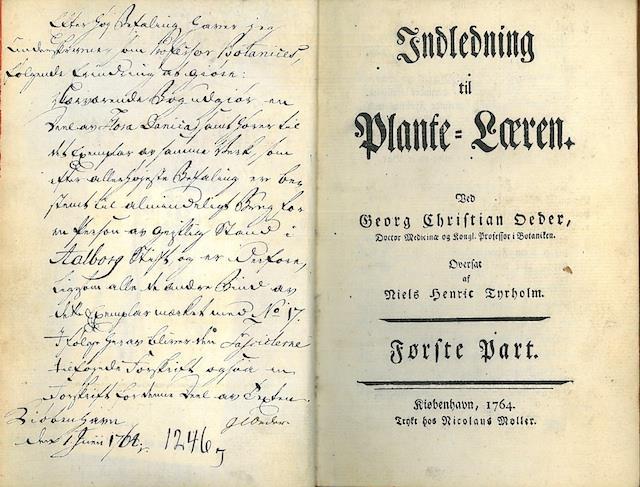 Efter høy Befaling haver jeg
som Professor Botanices,
følgende Erindring at giøre:
Nærværende Bog udgiør en
Deel av Flora Danica, samt hører til
det Exemplar av samme Verk, som
efter allerhøyeste Befaling er be-
stemt til almindeligt Brug for
Person av geistlig Stand i
Aalborg Stift og er derfore,
liigsom alle de andre Bind av
dette Exemplar mærket med No 17.
Ifølge herav bliver den Fasciclerne
tilføyede Forskrift ogsaa en
Forskrift for denne Deel av Texten.
Kiøbenhavn
den 1 Junii 1764.
GCOeder
1246
Indledning
til
Plante-Læren.
Ved
Georg Christian Oeder,
Doctor Medicinæ og Kongl. Professor i Botaniken.
Oversat
af
Niels Henric Tyrholm.
Første Part.
Kiøbenhavn, 1764.
Trykt hos Nicolaus Møller.